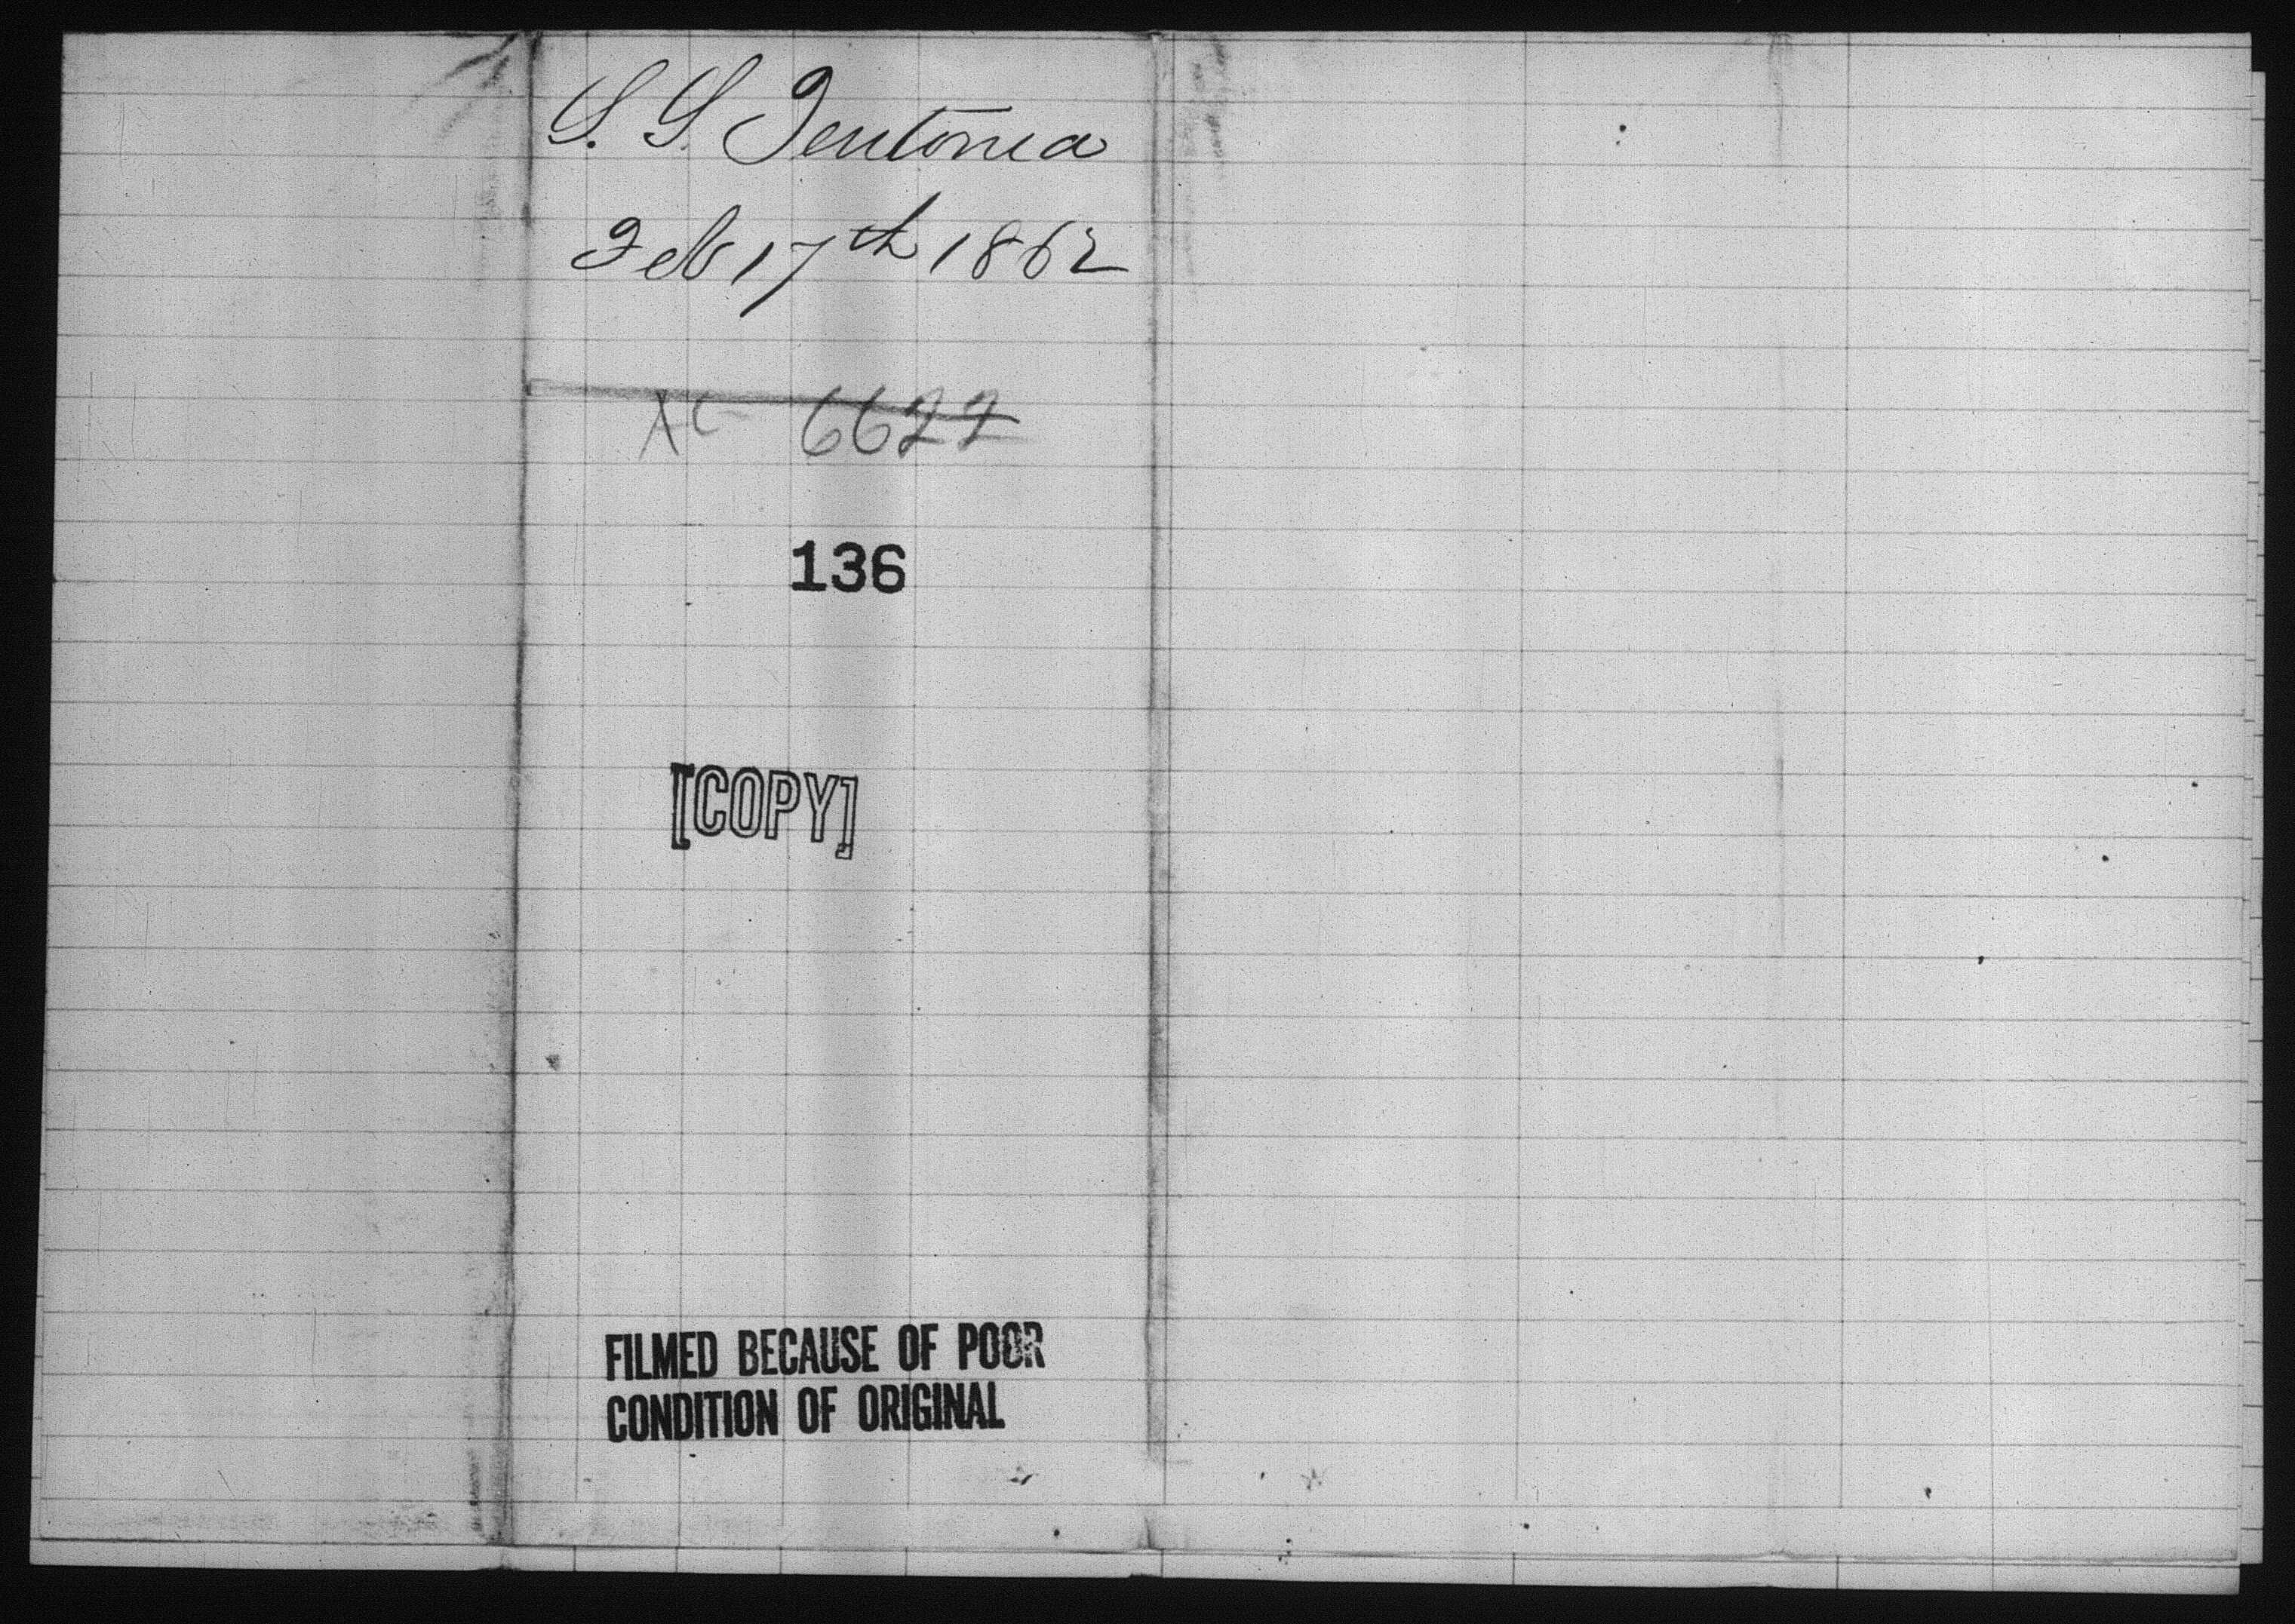 S. S. Teutonia
Feb 17th 1862
6622
136
[COPY]
FILMED BECAUSE OF POOR
CONDITION OF ORIGINAL